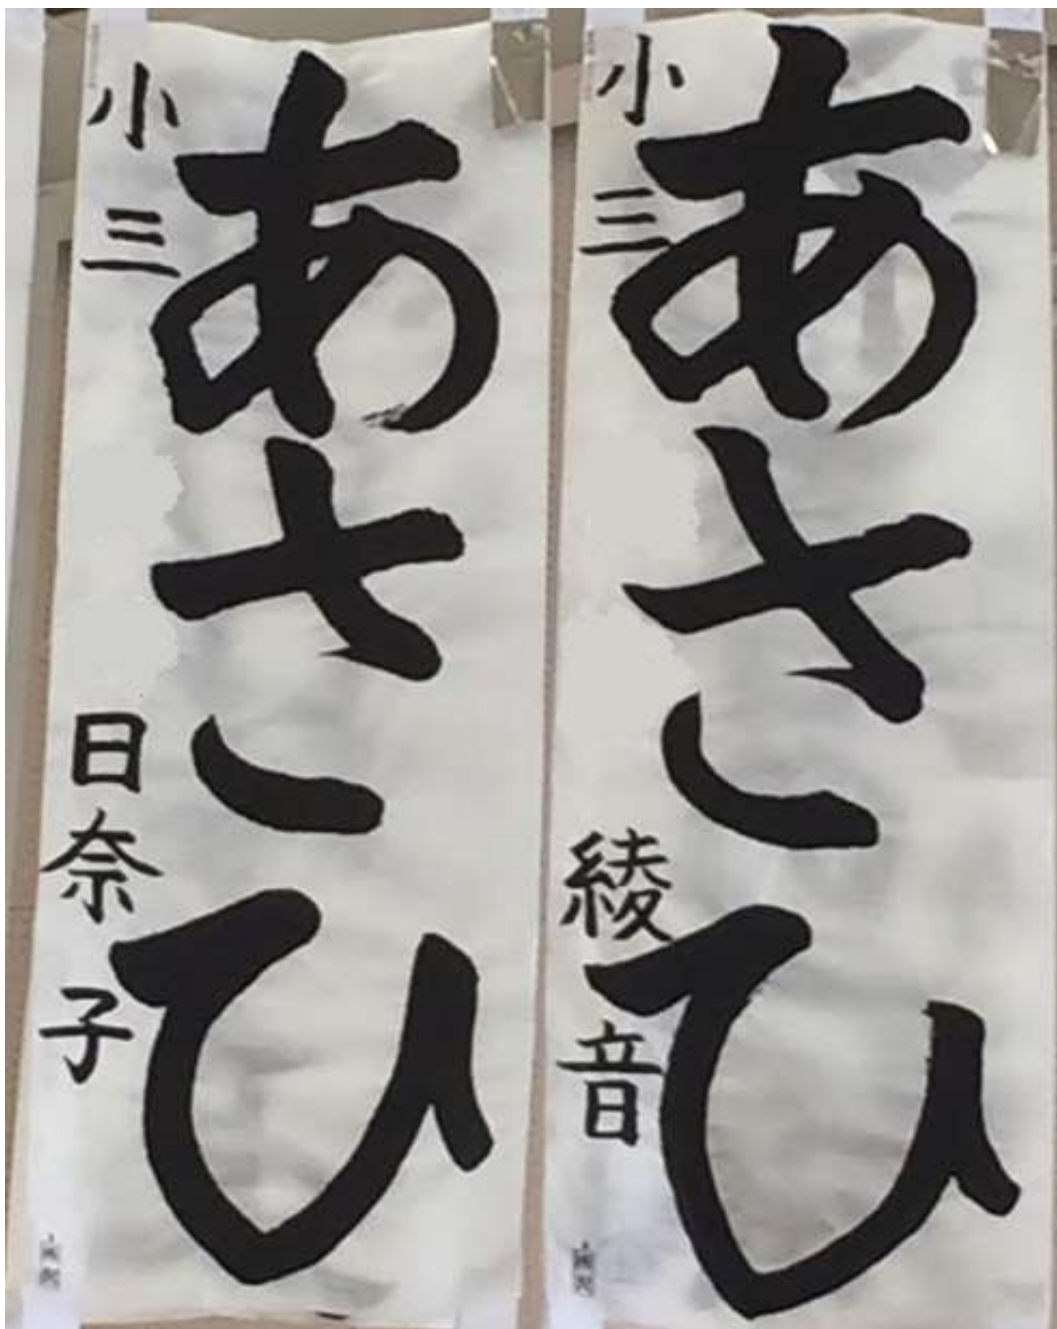 あさひ
小三 綾音
あさひ
小三 日奈子